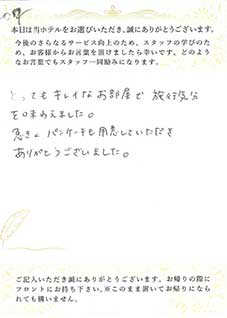 本日は当ホテルをお選びいただき、誠にありがとうございます。
今後のさらなるサービス向上のため、スタッフの学びのた
め、お客様からお言葉を頂けましたら幸いです。どのよう
なお言葉でもスタッフ一同励みになります。
とってもキレイなお部屋で 旅行気分
を味わえました。
パンケーキも用意していただき
ありがとうございました。
ご記入いただき誠にありがとうございます。お帰りの際に
フロントにお持ち下さい。※このまま置いてお帰りになら
れても構いません。